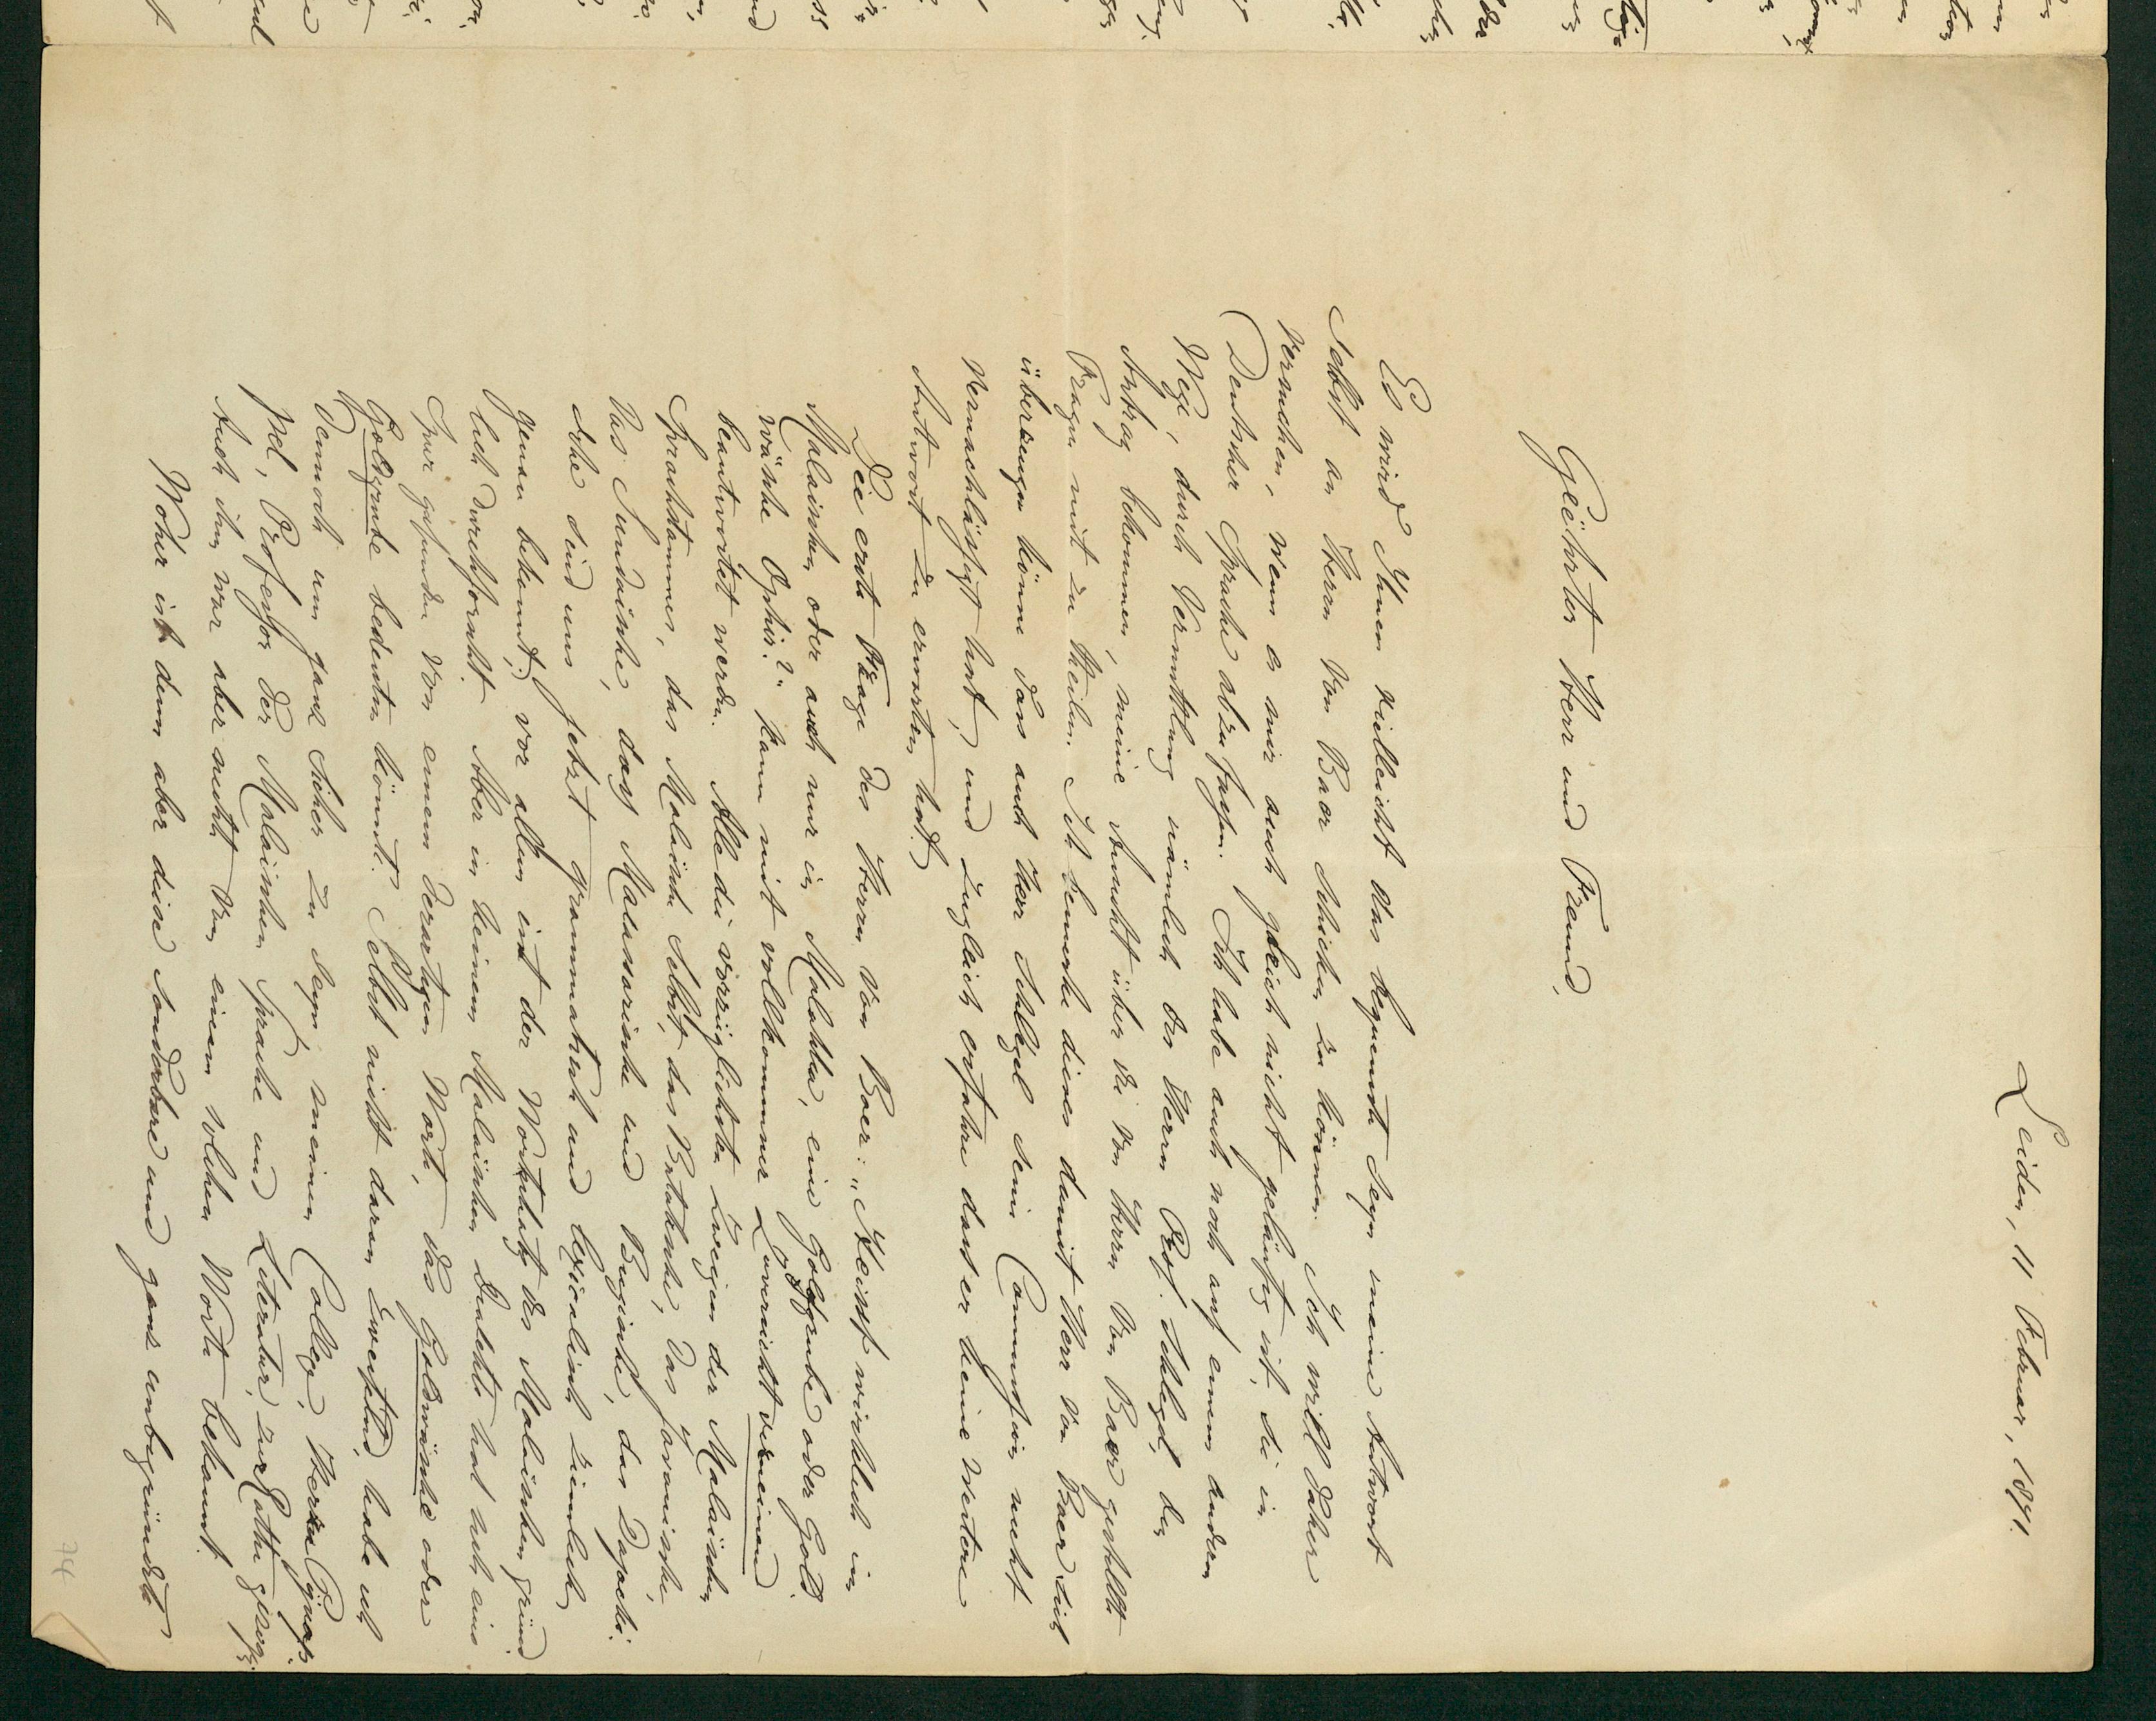 Leiden, 11 Februar, 1871.
Geëhrter Herr und Freund,
Es wird Ihnen vielleicht das bequemste seyn meine Antwort
selbst an Herrn Von Baer schicken zu können. Ich will daher
versuchen, wenn es mir auch gleich nicht geläufig ist, sie in
Deutscher Sprache abzufassen. Ich habe auch noch auf einem andern
Wege, durch Vermittlung nämlich des Herrn Prof. Schlegel, den
Antrag bekommen, meine Ansicht über die von Herrn Von Baer gestellte
Fragen mit zu theilen. Ich bemerke dieses damit Herr von Baer sich
überzeugen könne dass auch Herr Schlegel seine Commission nicht
vernachlässigt hat, und zugleich erfahre dass er keine weitere
Antwort zu erwarten hat.
Die erste Frage des Herrn Von Baer: „Heisst wirklich im
Malaischen oder auch nur in Malakka, eine Goldgrube oder Gold-
wäsche Ophir?“ kann mit vollkommner Zuversicht verneinend
beantwortet werden. Alle die vorzüglichsten Zweigen der Malaischen
Sprachstammes, das Malaische selbst, das Bataksche, das Javanische,
das Sundasche, das Madurasche und Buginsche, das Dajaksche
sind uns jetzt grammatisch und lexicalisch ziemlich
genau bekannt; vor allem ist der Wortschatz des Malaischen gründ-
lich durchforscht. Aber in keinem Malaischen Dialekte hat sich eine
Spur gefunden von einem derartigen Worte, das Goldwäsche oder
Goldgrube bedeuten könnte. Selbst nicht daran zweifelnd, habe ich
dennoch um ganz sicher zu seyn meinen Collega, Herrn Pijnap-
pel, Professor der Malaischen Sprache und Literatur, zu Rathe gezogen.
Auch ihm war aber nichts von einem solchen Worte bekannt.
Woher ist denn aber diese sonderbare und ganz unbegründete
744